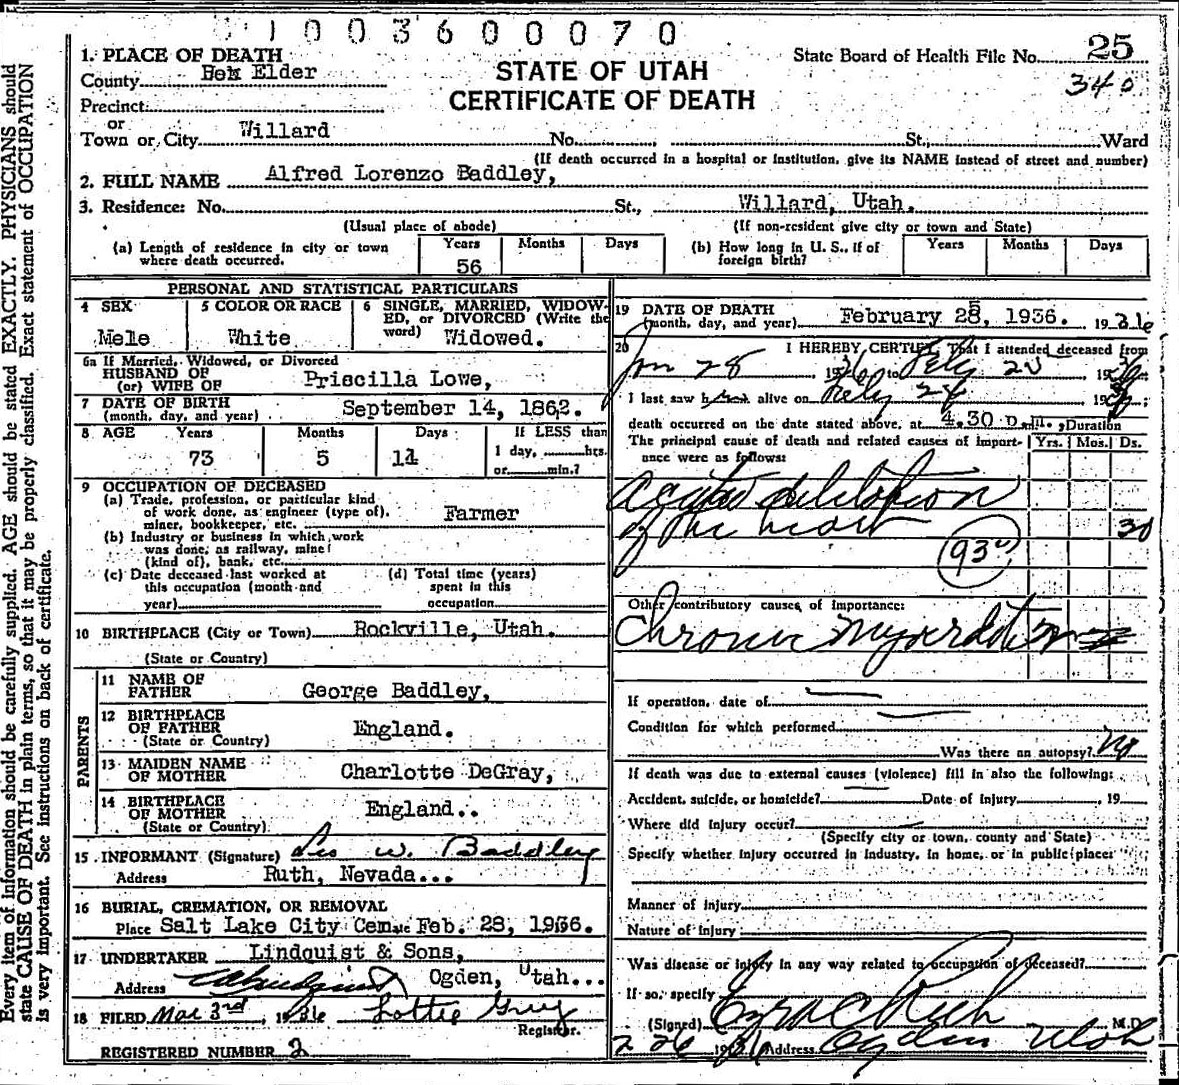 1003600070
Every item of information should be carefully supplied. AGE should be stated EXACTLY. PHYSICIANS should
state CAUSE OF DEATH in plain terms, so that it may be properly classified. Exact statement of OCCUPATION
is very important. See instructions on back of certificate.
State Board of Health File No. 25
340
STATE OF UTAH
CERTIFICATE OF DEATH
1. PLACE OF DEATH
County Box Elder
Precinct
or
Town or City Willard No. St., Ward
(If death occurred in a hospital or institution, give its NAME instead of street and number)
2. FULL NAME Alfred Lorenzo Baddley,
3. Residence: No. St., Willard, Utah.
(Usual place of abode) (If non-resident give city or town and State)
(a) Length of residence in city or town where death occurred. Years 56 Months Days
(b) How long in U. S., if of foreign birth? Years Months Days
PERSONAL AND STATISTICAL PARTICULARS
4 SEX Mele
5 COLOR OR RACE White
6 SINGLE, MARRIED, WIDOWED, or DIVORCED (Write the word) Widowed.
6a If Married, Widowed, or Divorced
HUSBAND OF
(or) WIFE OF Priscilla Lowe,
7 DATE OF BIRTH
(month, day, and year) September 14, 1862.
8 AGE Years 73 Months 5 Days 14 If LESS than 1 day, hrs. or min.?
9 OCCUPATION OF DECEASED
(a) Trade, profession, or particular kind
of work done, as engineer (type of),
miner, bookkeeper, etc. Farmer
(b) Industry or business in which work
was done, as railway, mine
(kind of), bank, etc.
(c) Date deceased last worked at
this occupation (month and
year)
(d) Total time (years)
spent in this
occupation
10 BIRTHPLACE (City or Town) Rockville, Utah.
(State or Country)
PARENTS
11 NAME OF
FATHER George Baddley,
12 BIRTHPLACE
OF FATHER England.
(State or Country)
13 MAIDEN NAME
OF MOTHER Charlotte DeGray,
14 BIRTHPLACE
OF MOTHER England..
(State or Country)
15 INFORMANT (Signature) Geo W. Baddley
Address Ruth, Nevada...
16 BURIAL, CREMATION, OR REMOVAL
Place Salt Lake City Cem. Date Feb. 28, 1936.
17 UNDERTAKER Lindquist & Sons,
Address Ogden, Utah...
18 FILED Mar 3rd, 1936 Lottie Gray
Registrar.
REGISTERED NUMBER 2
19 DATE OF DEATH
(month, day, and year) February 25, 1936. 1936
20 I HEREBY CERTIFY, That I attended deceased from
Jan 28, 1936 to Feby 25 1936
I last saw him alive on Feby 24 1936;
death occurred on the date stated above, at 4.30 p.m.
The principal cause of death and related causes of importance were as follows: Duration Yrs. Mos. Ds.
Acute dilitation
of the heart 30
93c
Other contributory causes of importance:
Chronic Myocarditis
If operation, date of
Condition for which performed
Was there an autopsy? No
If death was due to external causes (violence) fill in also the following:
Accident, suicide, or homicide? Date of injury , 19
Where did injury occur?
(Specify city or town, county and State)
Specify whether injury occurred in industry, in home, or in public places
Manner of injury
Nature of injury
Was disease or injury in any way related to occupation of deceased?
If so, specify
(Signed) Ezra C Rich M.D.
2 26 1936 Address Ogden Utah